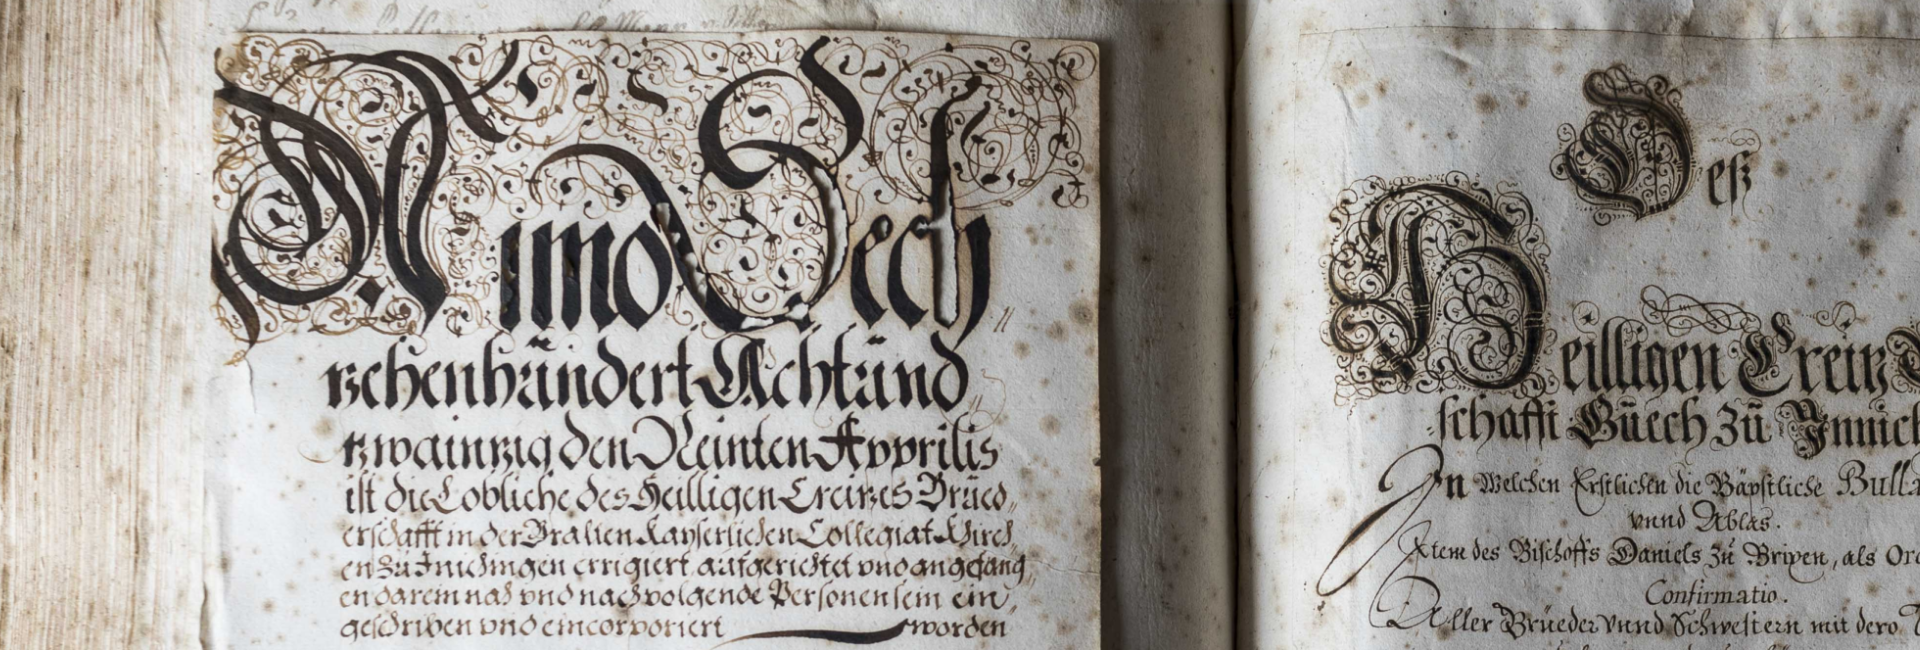 Anno Sech
zehenhündert Achtünd
zwainzig den Neinten Apprilis
ist die Lobliche des Heilligen Creizes Brued„
erschafft in der Vralten Kayserlichen Collegiat Kirch„
en Zu Inichingen errigiert aufgerichtet vnd angefang„
en darein nach vnd nachvolgende Personen sein ein„
geschriben vnd eincorporiert worden
Deß
Heilligen Creiz
schafft Büech Zü Ynnich
In Welchen Erstlichen die Bäpstliche Bulla
vnnd Ablas.
Item des Bischoffs Daniels Zu Brixen, als Or
Confirmatio.
Aller Brüeder Vnnd Schwestern mit dero